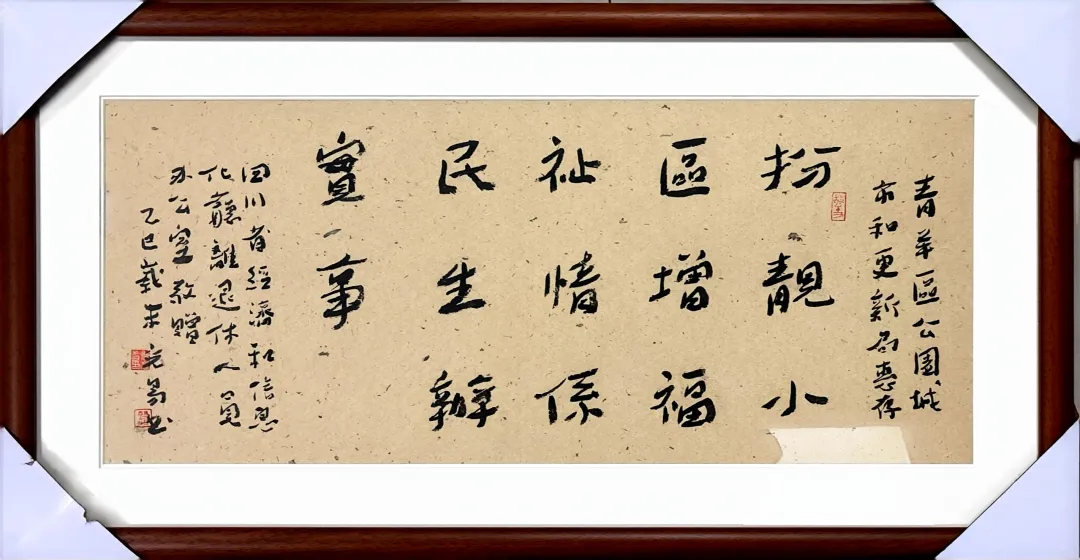 青羊區公園城
市和更新局惠存
扮靚小
區增福
祉情係
民生辦
實事
四川省經濟和信息
化廳離退休人員
办公室敬贈
乙巳歲末 书